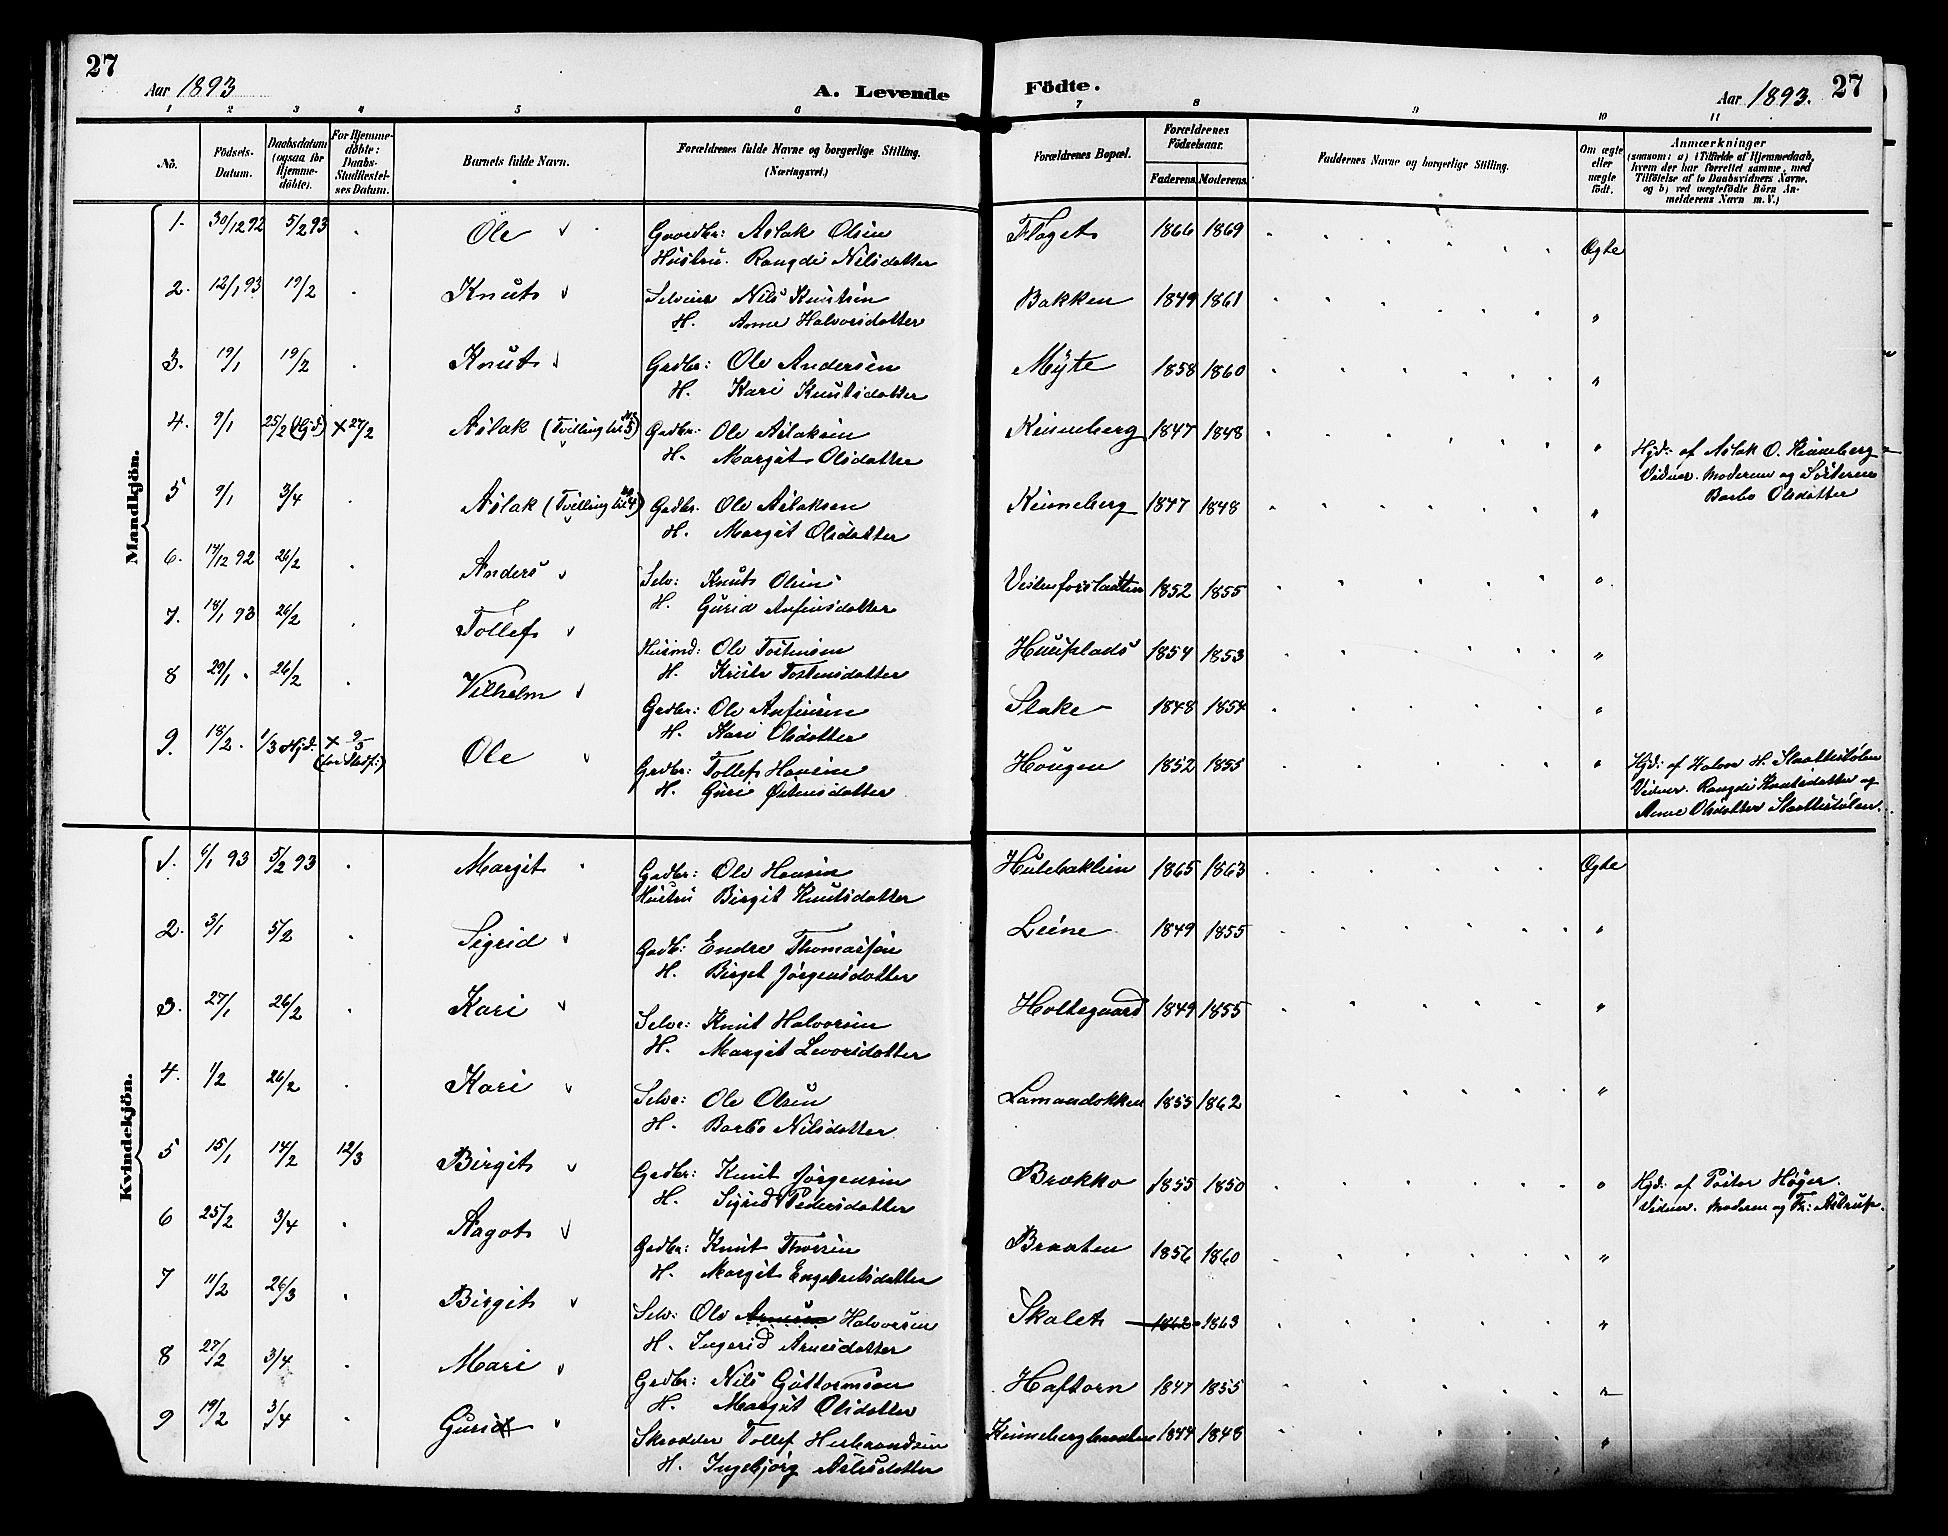 27
Aar 1893
A. Levende Födte.
Aar 1893.
27
1 2 3 4 5 6 7 8 9 10 11
No.
Födsels-Datum.
Daabsdatum (ogsaa for Hjemme-döbte).
For Hjemme-döbte: Daabs-Stadfæstel-ses Datum.
Barnets fulde Navn.
Forældrenes fulde Navne og borgerlige Stilling. (Næringsvei.)
Forældrenes Bopæl.
Forældrenes Födselsaar.
Faderens. Moderens.
Faddernes Navne og borgerlige Stilling.
Om ægte eller uægte födt.
Anmærkninger
(saasom: a) i Tilfælde af Hjemmedaab,
hvem der har forrettet samme, med
Tilföielse af to Daabsvidners Navne,
og b) ved uægtefödte Börn An-
melderens Navn m. V.)
Mandkjön.
1. 30/12 92 5/2 93 Ole Gaardbr: Aslak Olsen Flaget 1866 1869 Ægte
Hustru. Rangdi Nilsdatter
2. 12/1 93 19/2 Knut Selveier Nils Knutsen Bakken 1849 1861 "
H. Anne Halvorsdatter
3. 19/1 19/2 Knut Gadbr: Ole Andersen Myte 1858 1860 "
H. Kari Knutsdatter
4. 9/1 25/2 (Hjd) x 27/2 Aslak (Tvilling til No 5) Gadbr: Ole Aslaksen Kinneberg 1847 1848 " Hjd: af Aslak O. Kinneberg
H. Margit Olsdatter Vidner. Moderen og Søsteren
Barbo Olsdatter
5 9/1 3/4 Aslak (Tvilling til No 4) Gadbr. Ole Aslaksen Kinneberg 1847 1848 "
H. Margit Olsdatter
6. 14/12 92 26/2 Anders Selv: Knut Olsen 1852 1855 "
H. Gurid Anfinsdatter
7. 18/1 93 26/2 Tollef Husmd: Ole Tostensen Huusplads 1854 1853 "
H. Kristi Tostensdatter
8 29/1 26/2 Vilhelm Gadbr: Ole Anfinsen Slake 1848 1854 "
H. Kari Olsdatter
9. 18/2. 1/3 Hjd. x 9/5 (for Stadf:) Ole Gadbr: Tollef Hansen Hougen 1852 1855 " Hjd: af Halvor H. Slaattestølen
H. Guri Østensdatter Vidner. Rangdi Knutsdatter og
Anne Olsdatter Slaattestølen.
Kvindekjön.
1. 6/1 93 5/2 93 Margit Gadbr: Ole Hansen Hulebakkein 1865 1863 Ægte
Hustru Birgit Knutsdatter
2. 3/1 5/2 Sigrid Gadb: Endre Thomassen Leine 1849 1855 "
H. Birget Jørgensdatter
3. 27/1 26/2 Kari Selve: Knut Halvorsen Holtegaard 1849 1855 "
H. Margit Levorsdatter
4. 1/2 26/2 Kari Selve: Ole Olsen Lamandokken 1855 1862 "
H. Barbo Nilsdatter
5 15/1 14/2 12/3 Birgit Gadbr: Knut Jørgensen Brækko 1855 1850 " Hjd: af Pastor Høyer.
H. Sigrid Pedersdatter Vidner. Moderen og Fr: Astrup.
6 25/2 3/4 Aagot Gadbr: Knut Thorsen Braaten 1856 1860 "
H. Margit Engebretsdatter
7 11/2 26/3 Birgit Selv: Ole Arnesen Halvorsen Skalet 1862 1863 "
H. Ingerid Arnesdatter
8 27/2 3/4 Mari Gadbr: Nils Guttormsen Haftorn 1847 1855 "
H. Margit Olsdatter
9 19/2 3/4 Gurid Skrædder Tollef Herbrandsen Kinnebergbraaten 1844 1848 "
H. Ingebjørg Aslesdatter